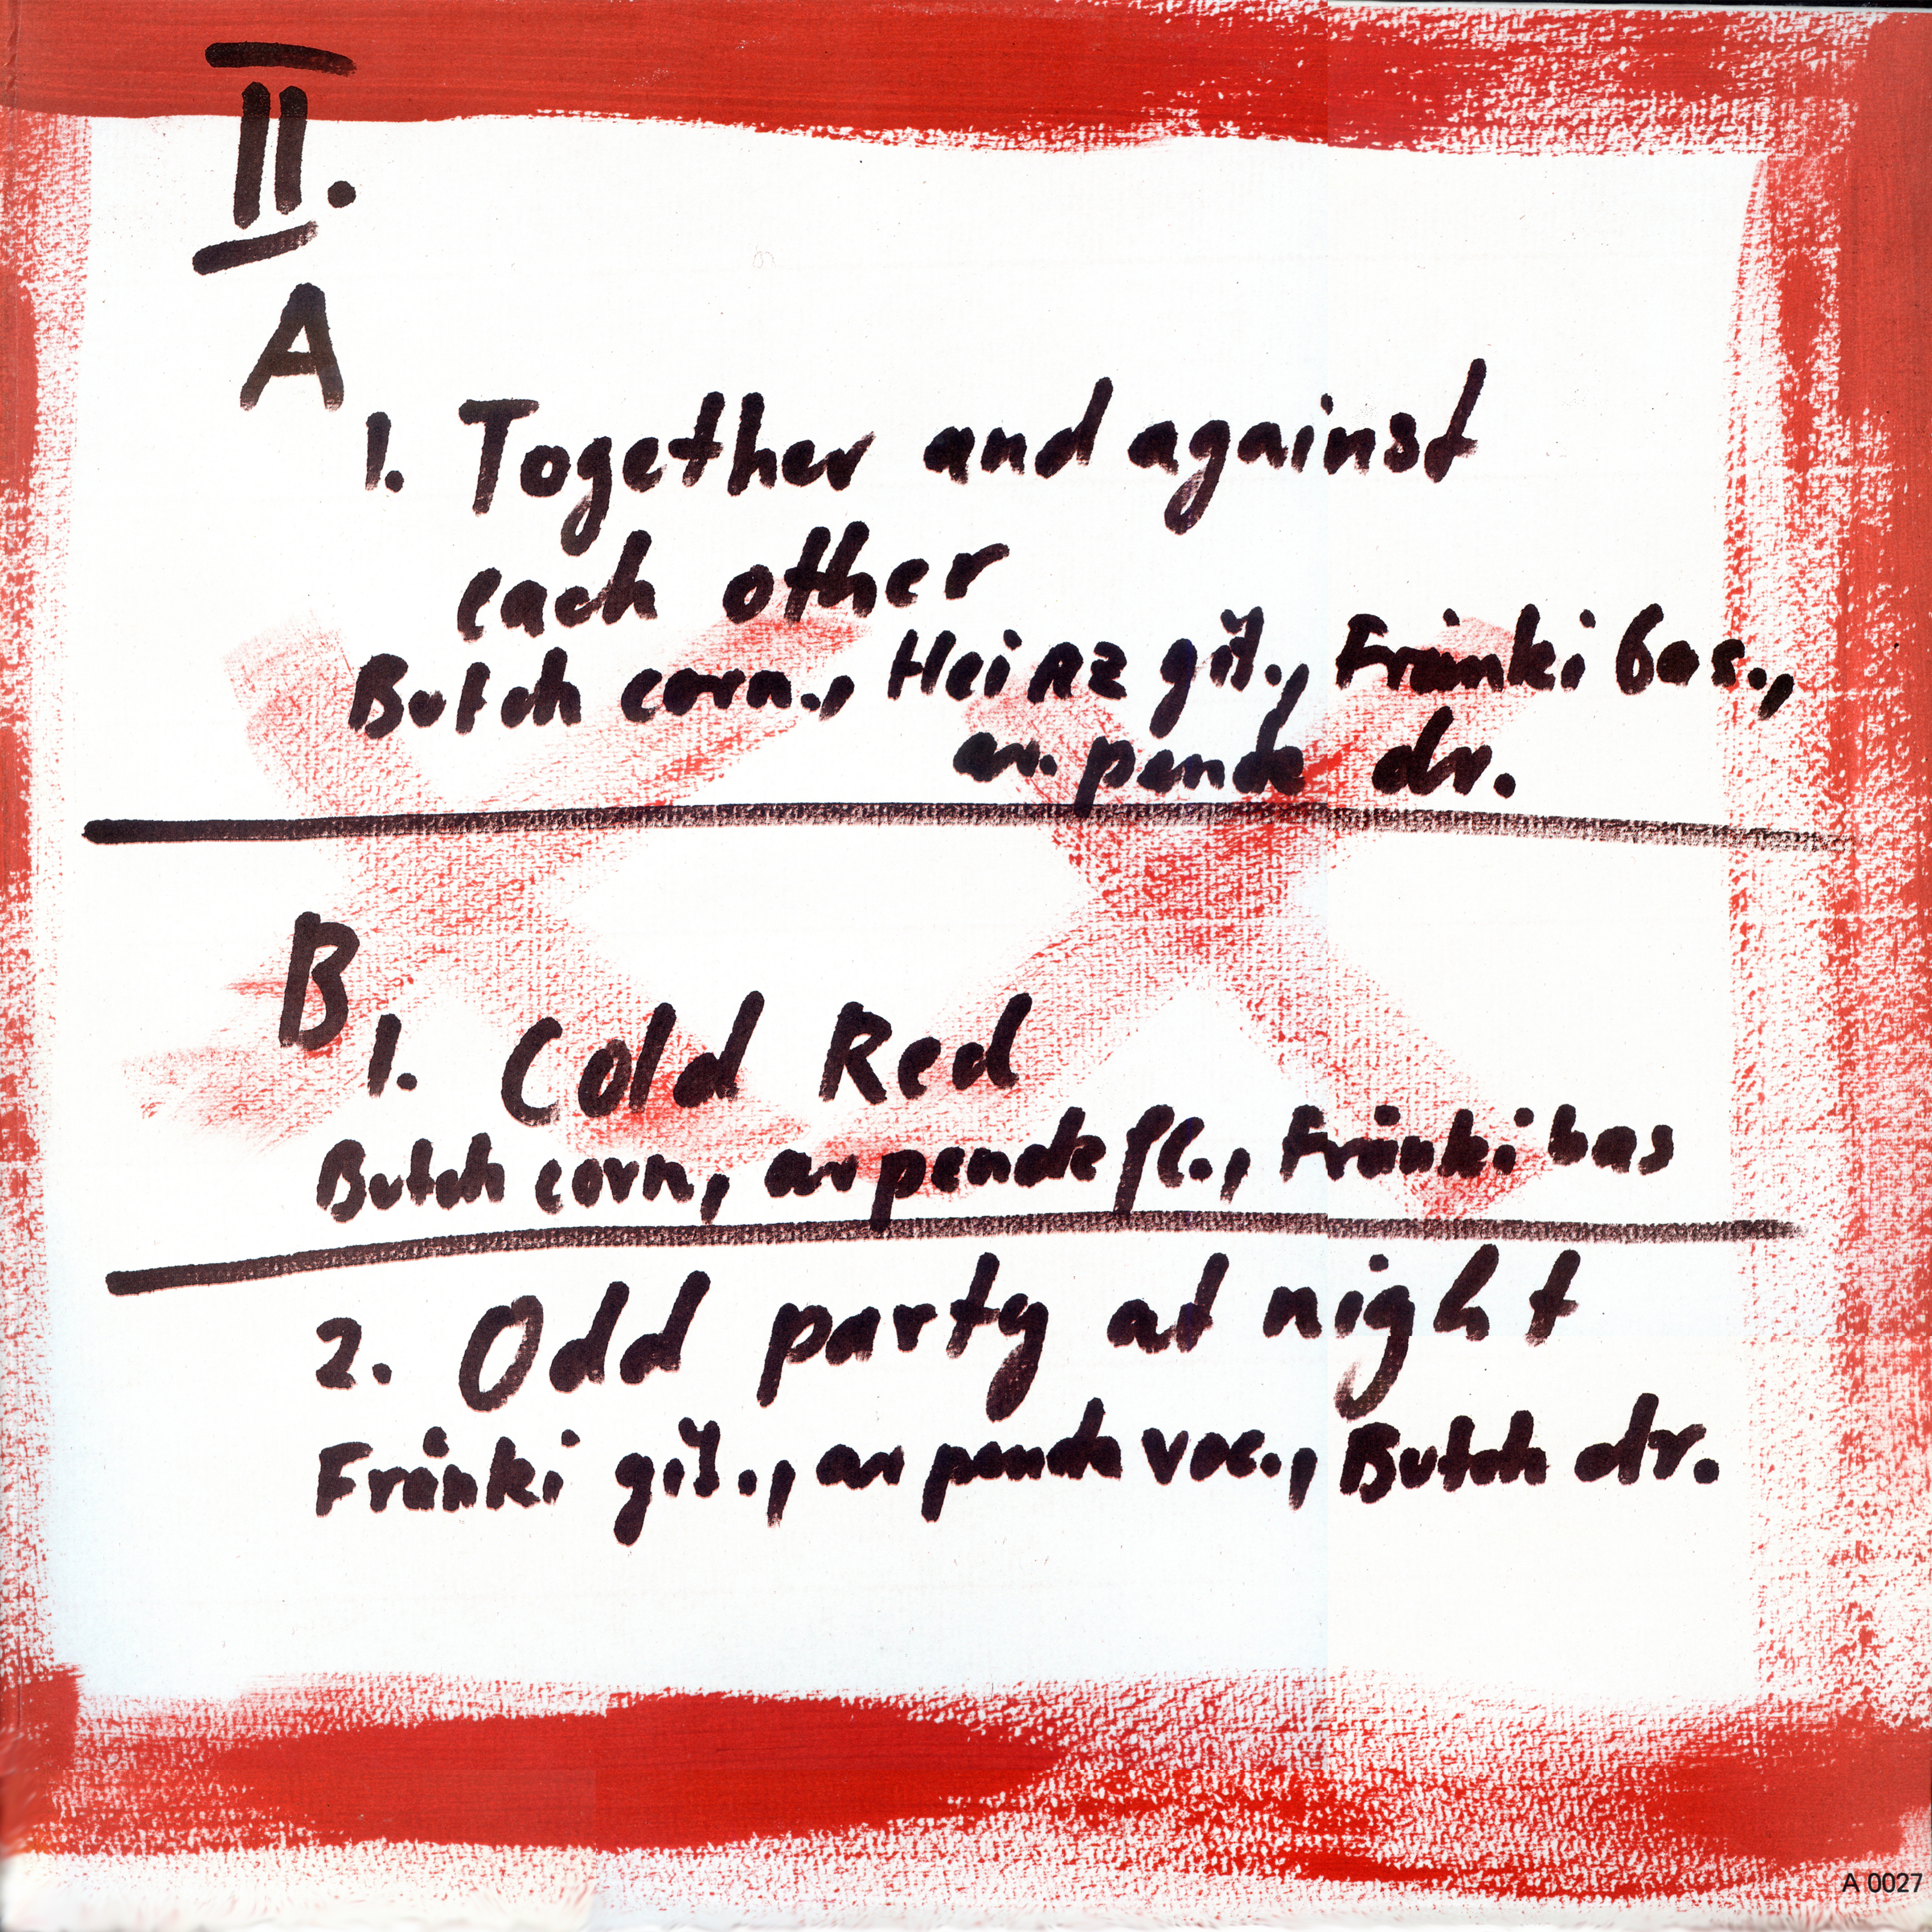 II.
A
1. Together and against
each other
Butch corn., Heinz git., Fränki bas.,
ar. penck dr.
B
1. Cold Red
Butch corn, ar penck fl., Fränki bas
2. Odd party at night
Fränki git., ar penck voc., Butch dr.
A 0027